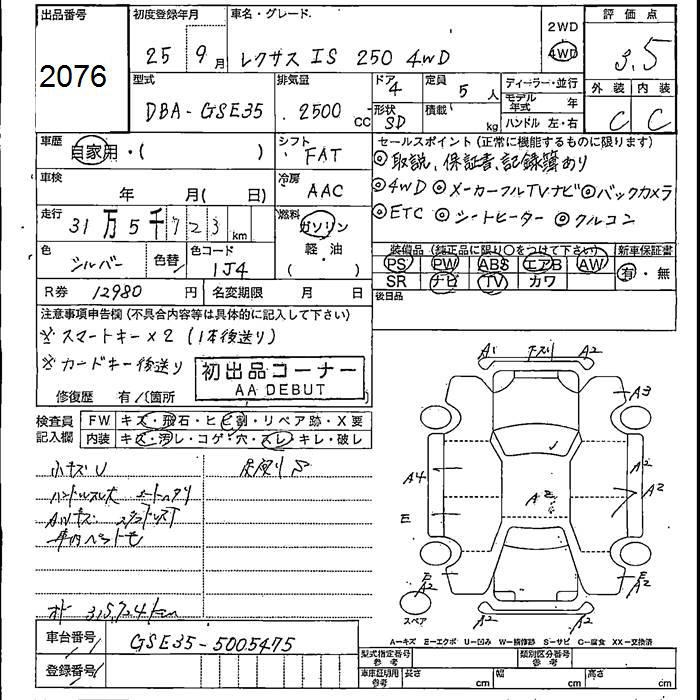 出品番号 初度登録年月 車名・グレード 評価点
2076
25 9月 レクサス IS 250 4WD 2WD 4WD 3.5
型式 排気量 ドア 4 定員 5人 ディーラー・並行 外装 内装
DBA-GSE35 2500 cc 形状 SD 積載 kg モデル年式 年 ハンドル 左・右 C C
車歴 自家用・( ) シフト FAT セールスポイント (正常に機能するものに限ります)
◎取説、保証書、記録簿あり
車検 年 月( 日) 冷房 AAC
◎4WD ◎メーカーフルTVナビ ◎バックカメラ
走行 31万5千723km 燃料 ガソリン
◎ETC ◎シートヒーター ◎クルコン
色 シルバー 色替 色コード 1J4 軽・油 ( )
装備品 (純正品に限り○をつけて下さい) 新車保証書
PS PW ABS エアB AW 有・無
SR ナビ TV カワ
R券 12980 円 名変期限 月 日 後日品
注意事項申告欄 (不具合内容等は具体的に記入して下さい)
※スマートキー×2 (1本後送り)
※カードキー後送り
初出品コーナー
AA DEBUT
修復歴 有/(箇所
検査員記入欄 FW キズ・飛石・ヒビ割・リペア跡・X要
内装 キズ・汚レ・コゲ・穴・スレ・キレ・破レ
小キズU
ハンドルスレ大
AWキズ
車内ペット毛
オド 315,724km
A1 A2
A3
A4 A2 A2
A2
E
E A2 E A2
A2 A2
スペア
A-キズ E-エクボ U-凹み W-補修跡 S-サビ C-腐食 XX-交換済
車台番号 GSE35-5005475
登録番号
型式指定番号 参考 類別区分番号 参考
車庫証明用 参考 長さ cm 幅 cm 高さ cm